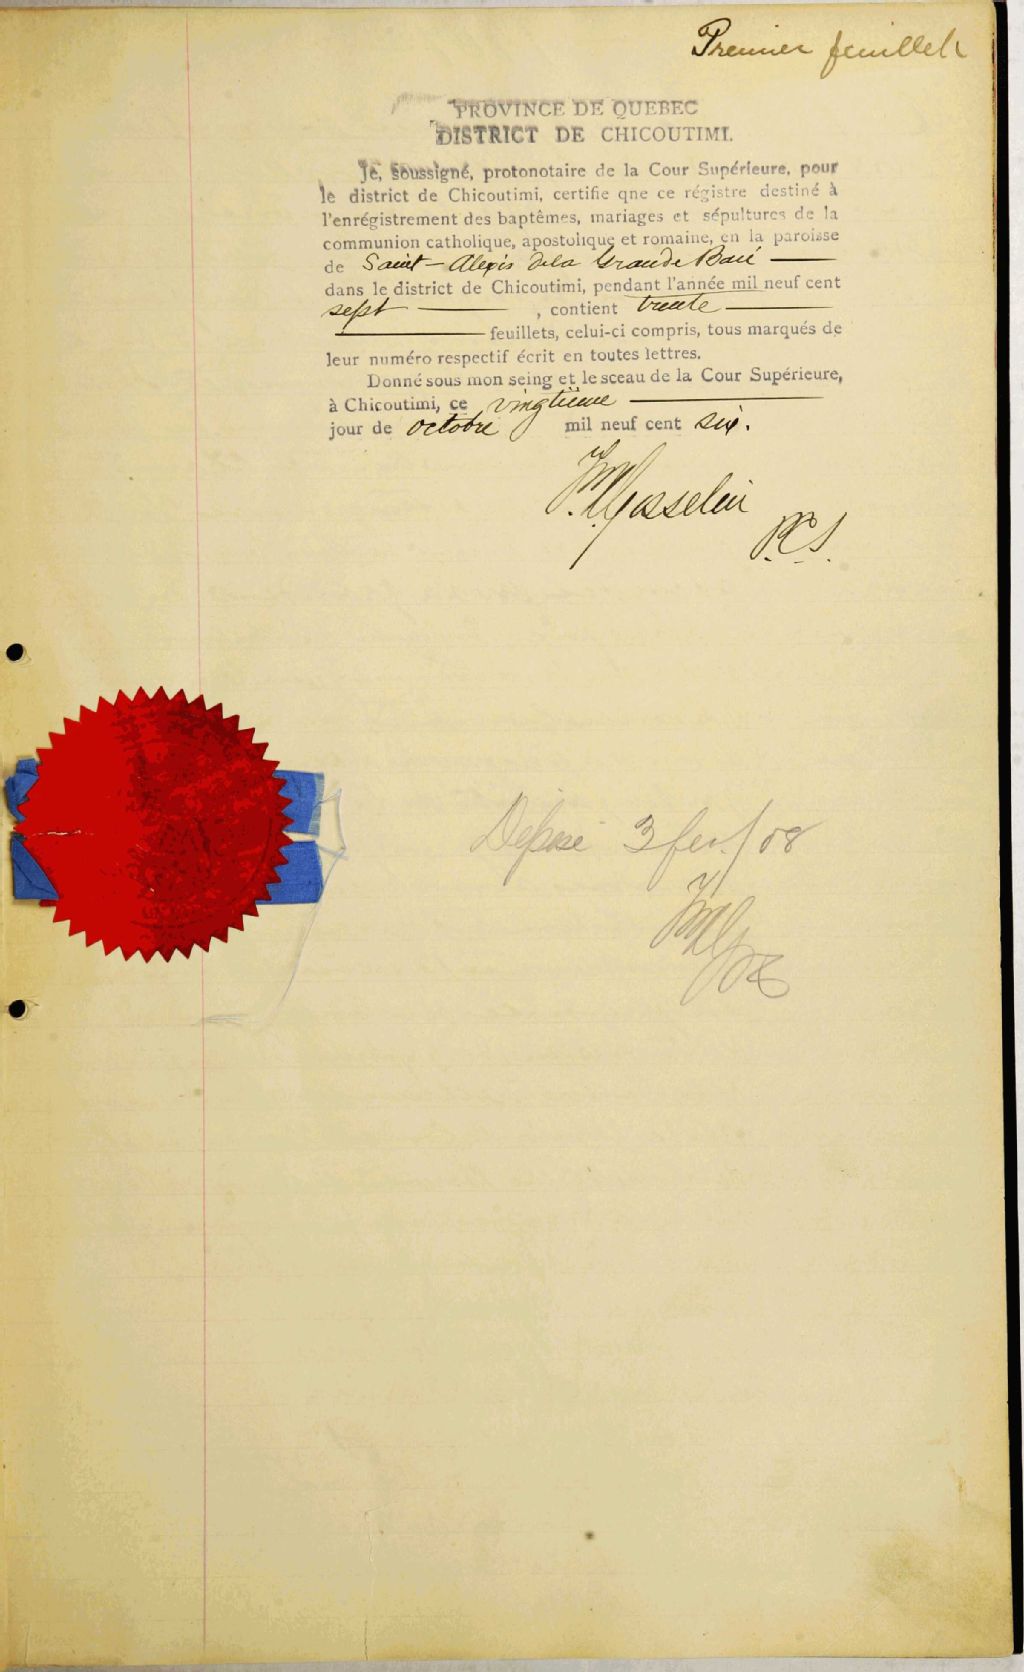 Premier feuillet
PROVINCE DE QUEBEC
DISTRICT DE CHICOUTIMI.
Je, soussigné, protonotaire de la Cour Supérieure, pour
le district de Chicoutimi, certifie qne ce régistre destiné à
l'enrégistrement des baptêmes, mariages et sépultures de la
communion catholique, apostolique et romaine, en la paroisse
de Saint-Alexis de la Grande Baie
dans le district de Chicoutimi, pendant l'année mil neuf cent
sept , contient trente
feuillets, celui-ci compris, tous marqués de
leur numéro respectif écrit en toutes lettres.
Donné sous mon seing et le sceau de la Cour Supérieure,
à Chicoutimi, ce vingtième
jour de octobre mil neuf cent six.
Gosselin
P.C.S.
Déposé 3 fev./08